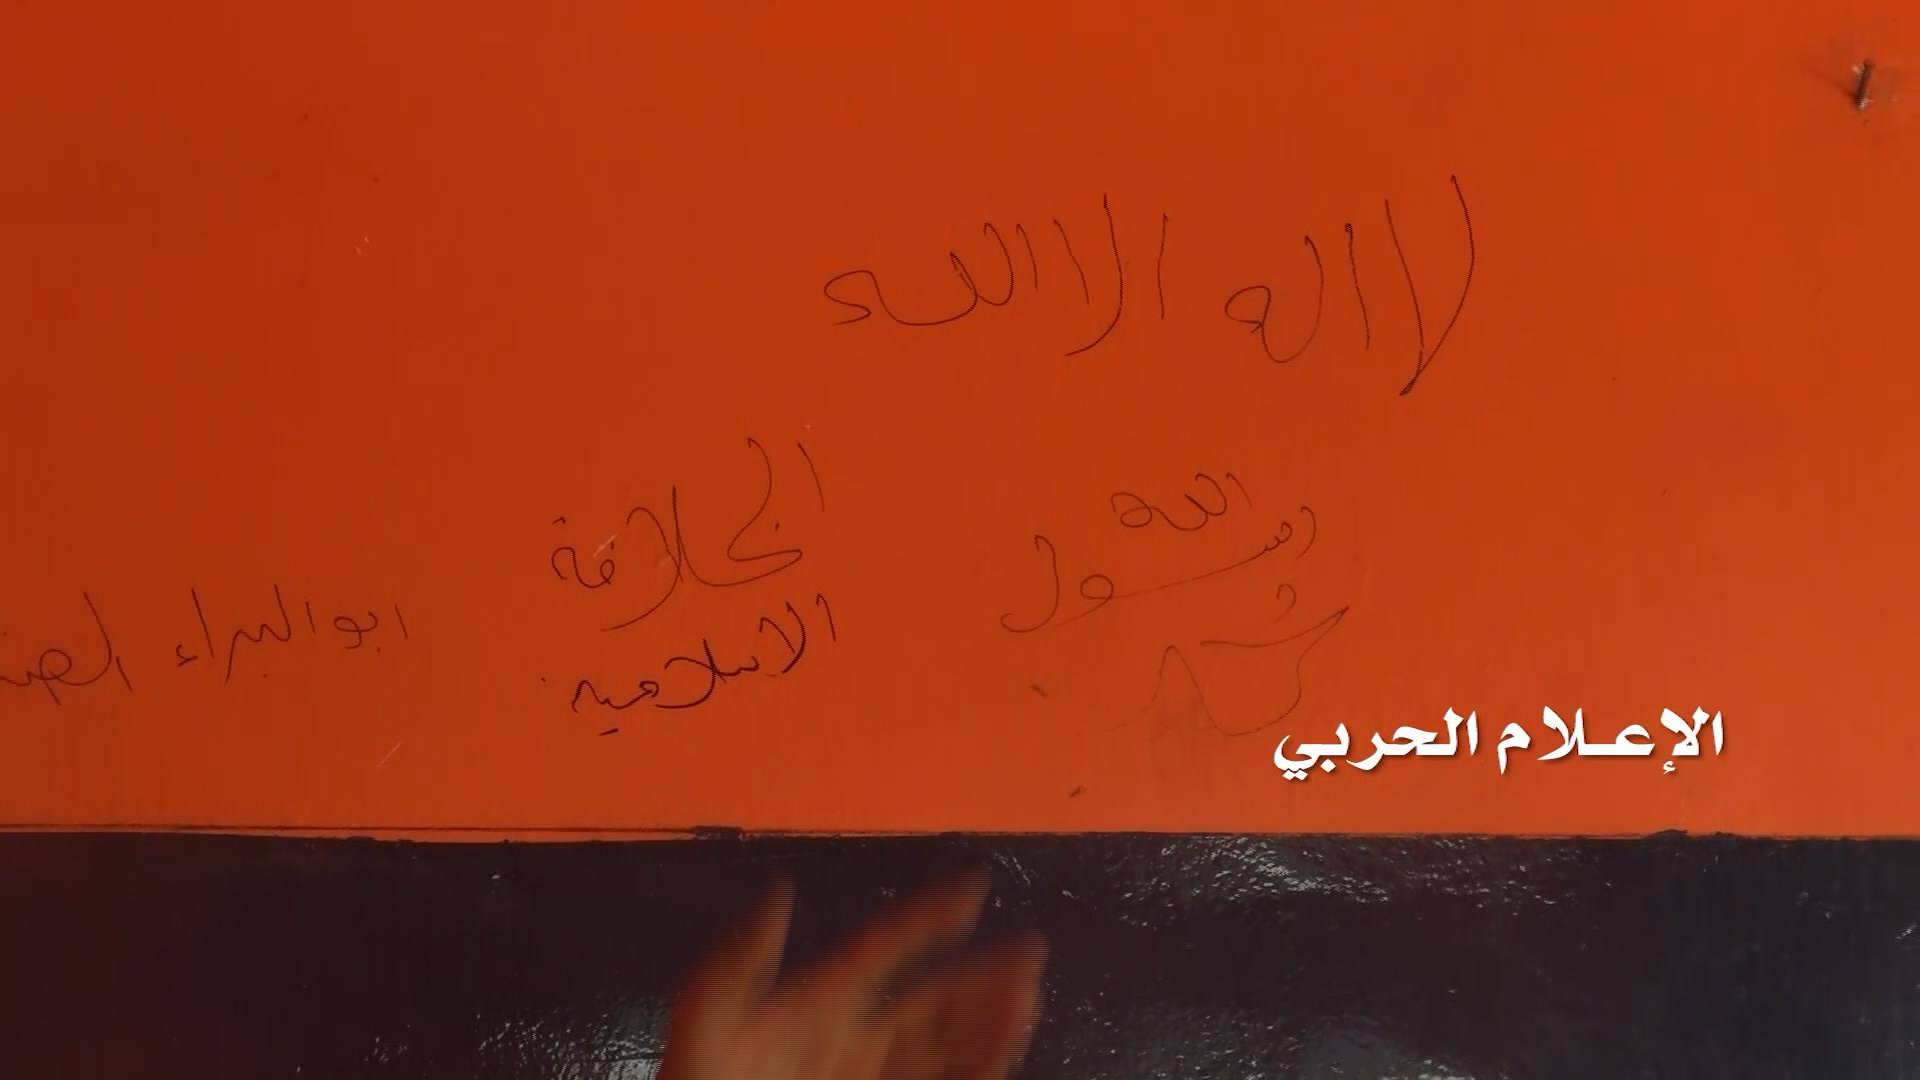 لا اله الا الله
الله
رسول
محمد
الخلافة
الاسلاميه
ابو البراء
الإعلام الحربي